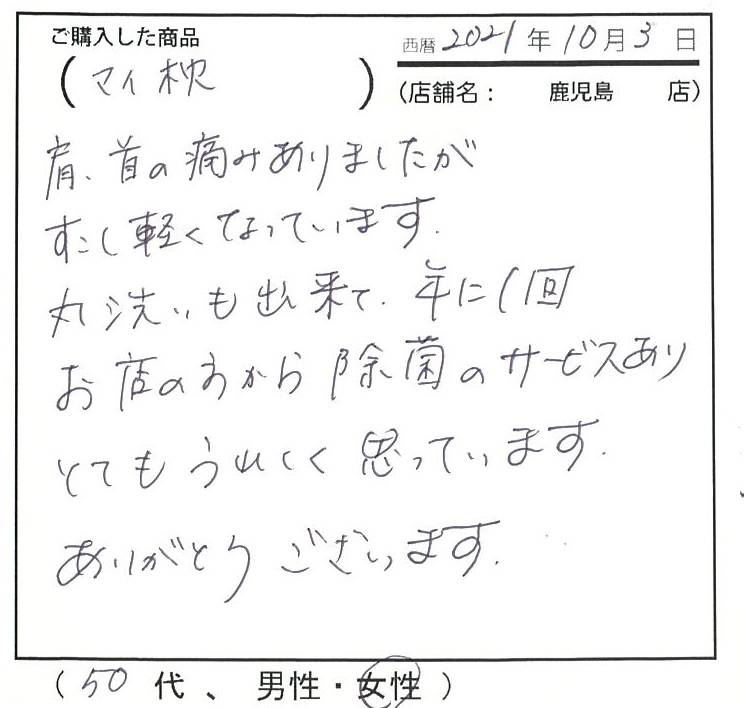 ご購入した商品
(マイ枕)
西暦2021年10月3日
(店舗名： 鹿児島 店)
肩、首の痛みありましたが
すこし軽くなっています。
丸洗いも出来て、年に1回
お店の方から除菌のサービスあり
とてもうれしく思っています。
ありがとうございます。
(50代、男性・女性)